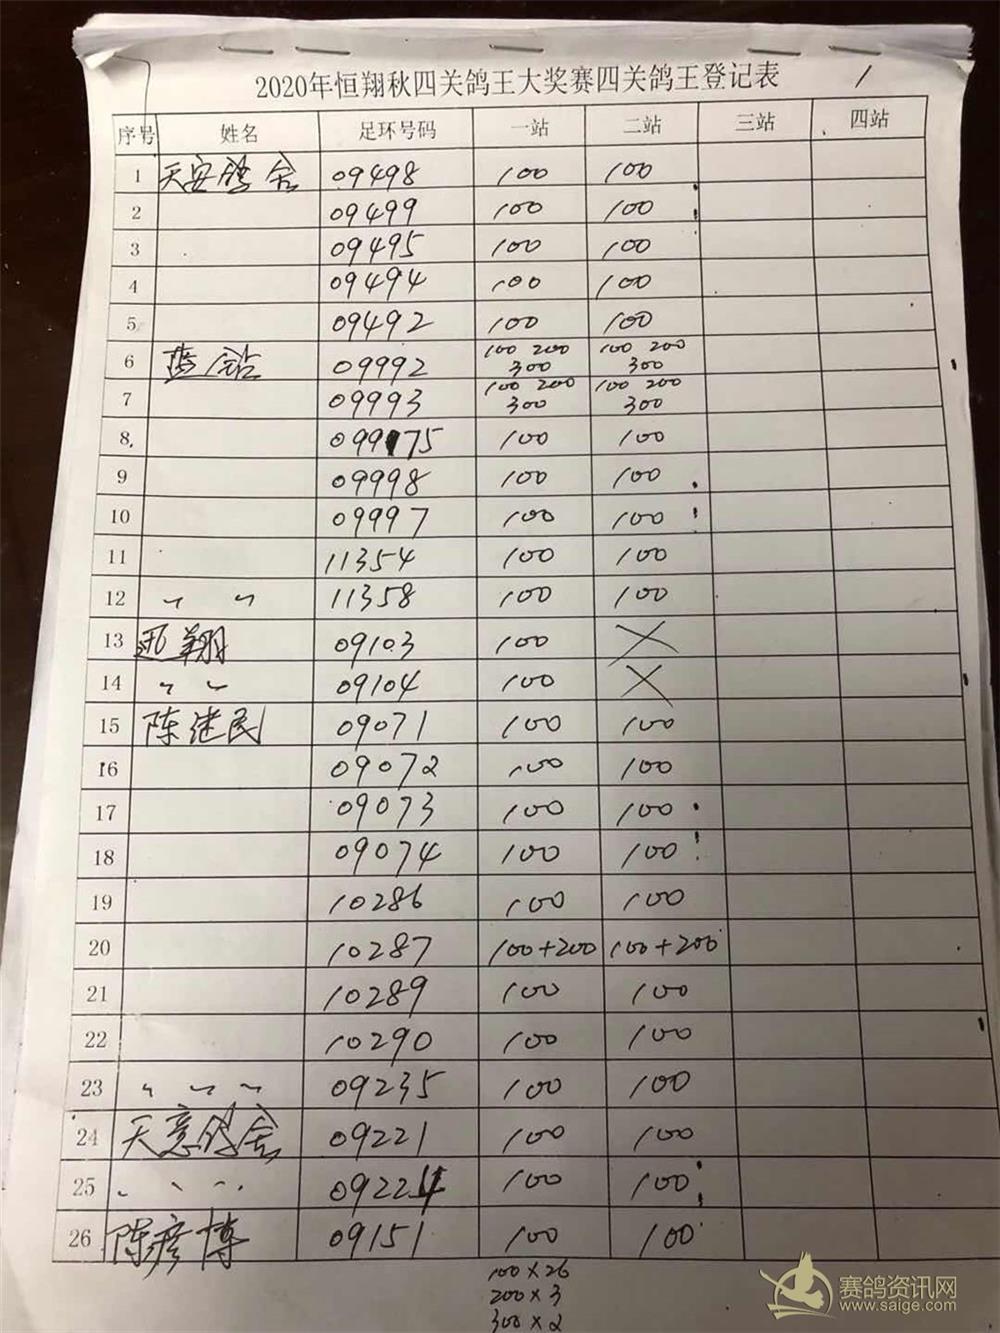 2020年恒翔秋四关鸽王大奖赛四关鸽王登记表
1
序号 姓名 足环号码 一站 二站 三站 四站
1 天安鸽舍 09498 100 100
2 09499 100 100
3 09495 100 100
4 09494 100 100
5 09492 100 100
6 蓝钻 09992 100 200 300 100 200 300
7 09993 100 200 300 100 200 300
8 09975 100 100
9 09998 100 100
10 09997 100 100
11 11354 100 100
12 〃 〃 11358 100 100
13 迅翔 09103 100 ×
14 〃 〃 09104 100 ×
15 陈建民 09071 100 100
16 09072 100 100
17 09073 100 100
18 09074 100 100
19 10286 100 100
20 10287 100+200 100+200
21 10289 100 100
22 10290 100 100
23 〃 〃 〃 09235 100 100
24 天意鸽舍 09221 100 100
25 〃 〃 〃 〃 09224 100 100
26 陈彦博 09151 100 100
100×26
200×3
300×2
赛鸽资讯网
www.saige.com